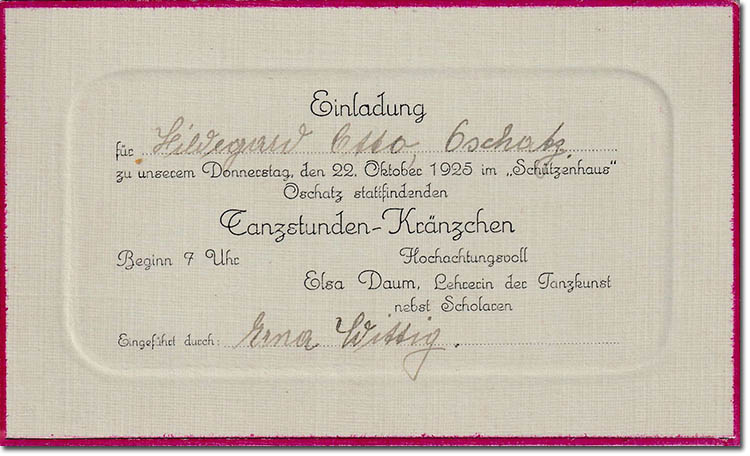 Einladung
für Hildegard Otto, Oschatz.
zu unserem Donnerstag, den 22. Oktober 1925 im „Schützenhaus"
Oschatz stattfindenden
Tanzstunden-Kränzchen
Beginn 7 Uhr Hochachtungsvoll
Elsa Daum, Lehrerin der Tanzkunst
nebst Scholaren
Eingeführt durch: Erna Wittig.